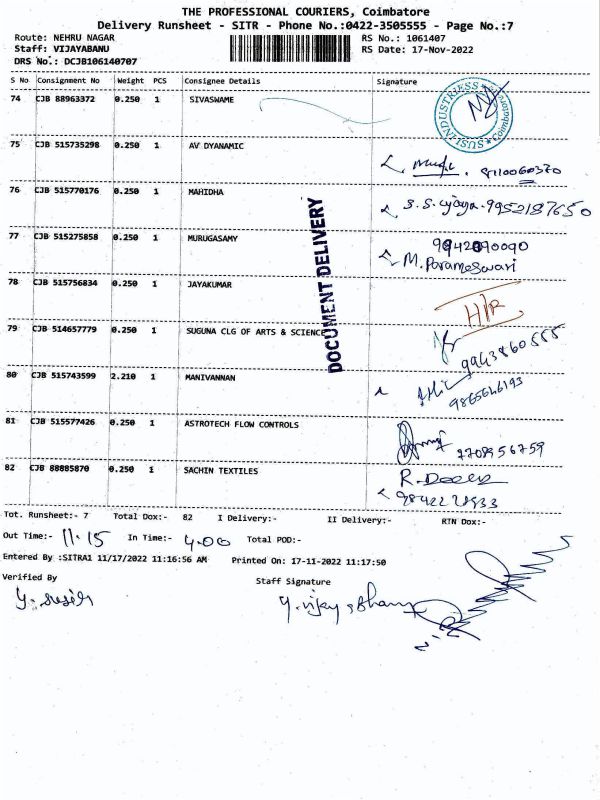 THE PROFESSIONAL COURIERS, Coimbatore
Delivery Runsheet - SITR - Phone No.:0422-3505555 - Page No.:7
Route: NEHRU NAGAR RS No.: 1061407
Staff: VIJAYABANU RS Date: 17-Nov-2022
DRS No.: DCJB106140707
S No Consignment No Weight PCS Consignee Details Signature
74 CJB 88963372 0.250 1 SIVASWAME
INDUSTRIESS Coimbatore
75 CJB 515735298 0.250 1 AV DYANAMIC
76 CJB 515770176 0.250 1 MAHIDHA
S.S. 9952187650
77 CJB 515275858 0.250 1 MURUGASAMY 9942090090
M. Parameswari
78 CJB 515756834 0.250 1 JAYAKUMAR
DOCUMENT DELIVERY
79 CJB 514657779 0.250 1 SUGUNA CLG OF ARTS & SCIENCE
9943860555
80 CJB 515743599 2.210 1 MANIVANNAN
9865646193
81 CJB 515577426 0.250 1 ASTROTECH FLOW CONTROLS
82 CJB 88885870 0.250 1 SACHIN TEXTILES
Tot. Runsheet:- 7 Total Dox:- 82 I Delivery:- II Delivery:- RTN Dox:-
Out Time:- 11.15 In Time:- 4.00 Total POD:-
Entered By :SITRA1 11/17/2022 11:16:56 AM Printed On: 17-11-2022 11:17:50
Verified By Staff Signature